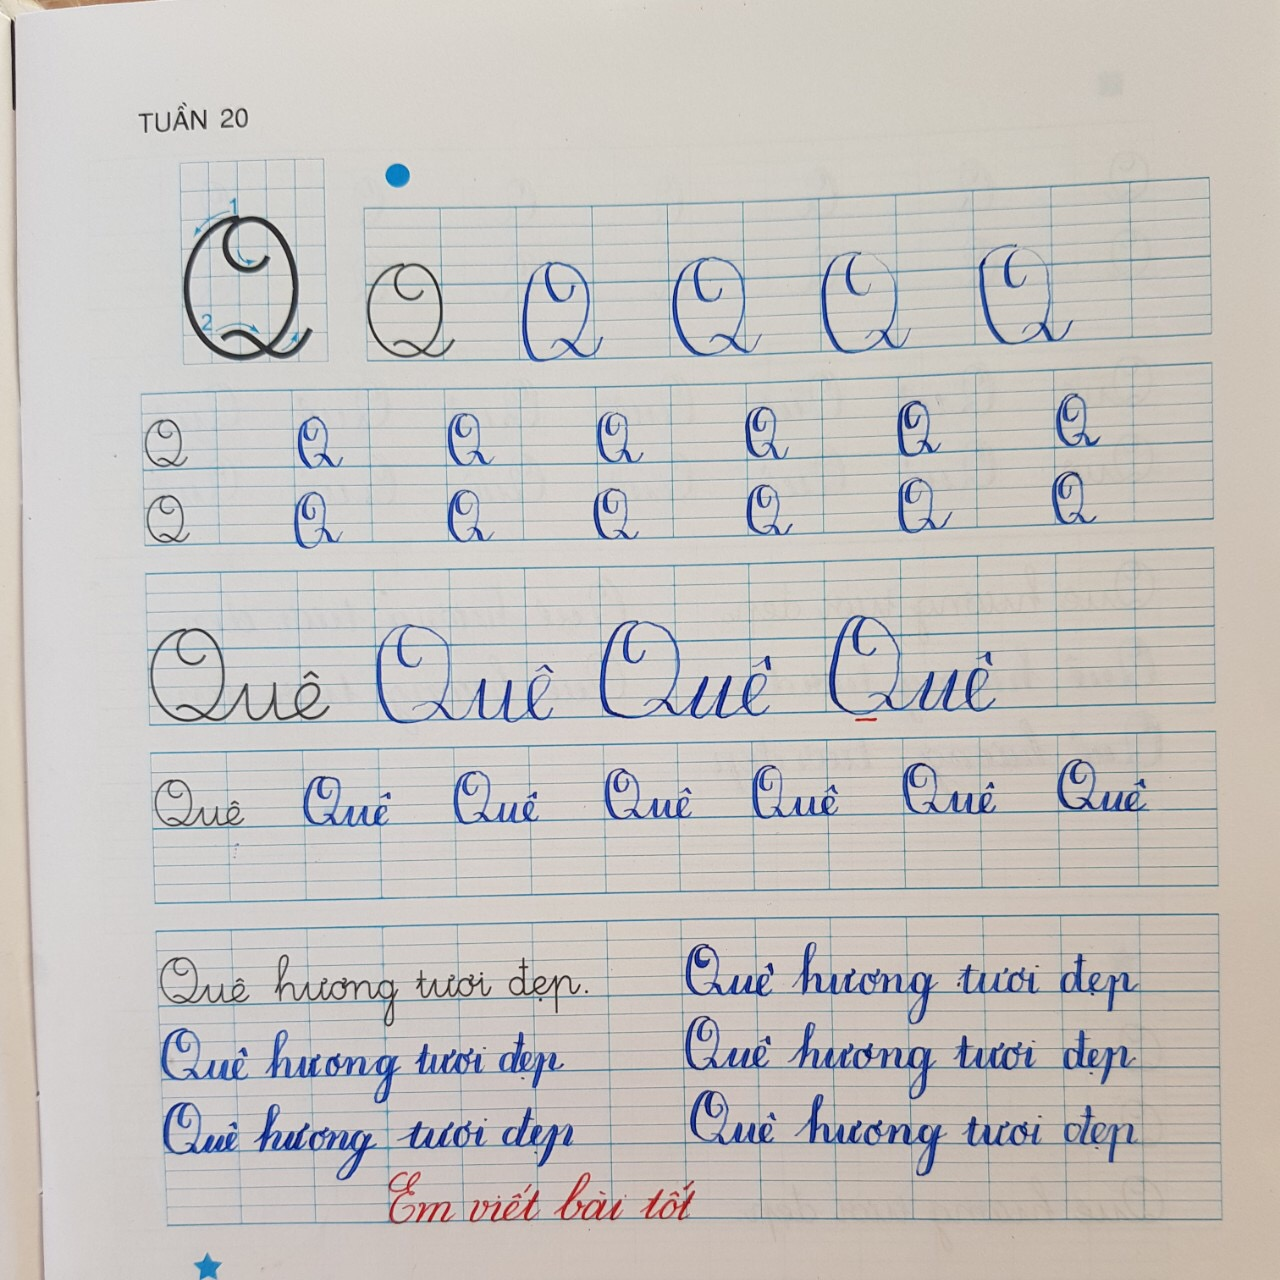 TUẦN 20
1
2
Q
Q Q Q Q Q
Q Q Q Q Q Q Q
Q Q Q Q Q Q Q
Quê Quê Quê Quê
Quê Quê Quê Quê Quê Quê Quê
Quê hương tươi đẹp. Quê hương tươi đẹp
Quê hương tươi đẹp Quê hương tươi đẹp
Quê hương tươi đẹp Quê hương tươi đẹp
Em viết bài tốt